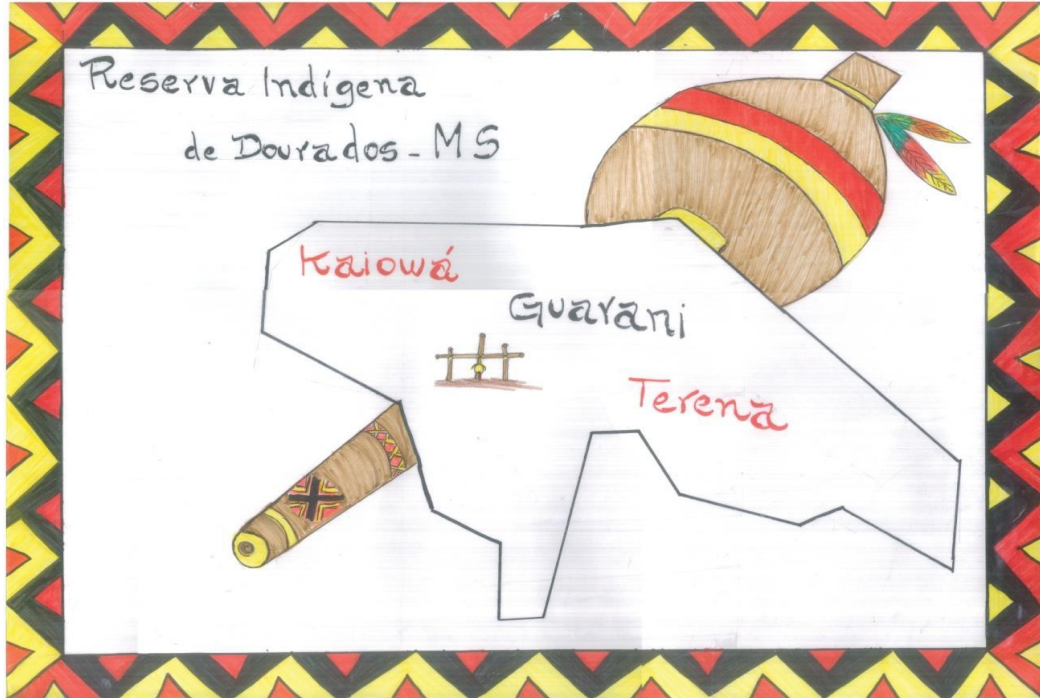 Reserva Indígena
de Dourados - MS
Kaiowá
Guarani
Terena